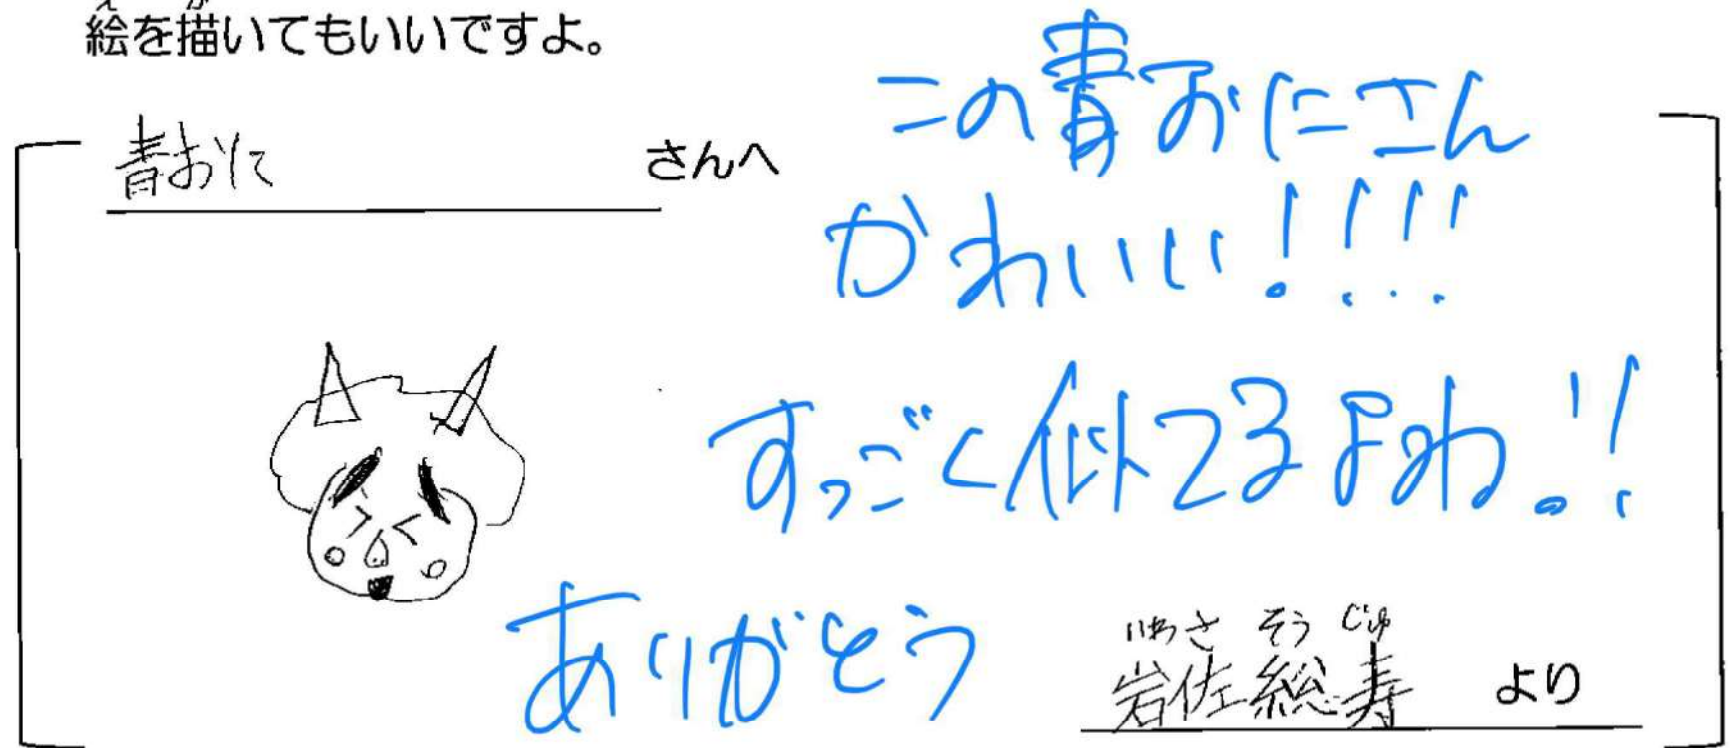 絵を描いてもいいですよ。
青おに さんへ
この青おにさん
かわいい!!!!
すっごく似てるよね!!
ありがとう
いわさ そうじゅ
岩佐総寿 より